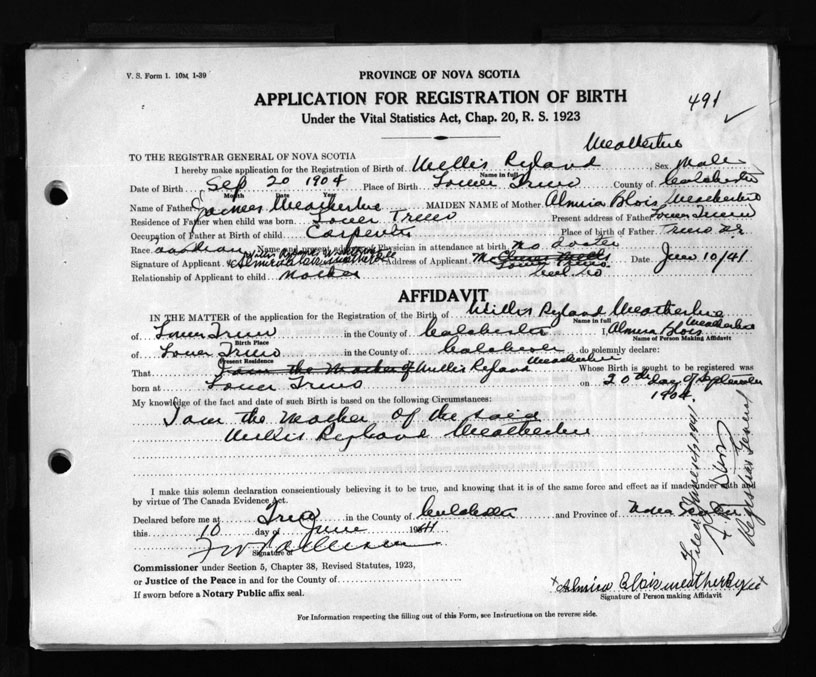 V. S. Form 1. 10M, 1-39
PROVINCE OF NOVA SCOTIA
APPLICATION FOR REGISTRATION OF BIRTH
491 ✓
Under the Vital Statistics Act, Chap. 20, R. S. 1923
TO THE REGISTRAR GENERAL OF NOVA SCOTIA
I hereby make application for the Registration of Birth of Willis Ryland Weatherbee Sex Male
Name in full
Date of Birth Sep 20 1904 Place of Birth Lower Truro County of Colchester
Month Date Year
Name of Father James Weatherbee MAIDEN NAME of Mother Almira Blois Weatherbee
Residence of Father when child was born Lower Truro Present address of Father Lower Truro
Occupation of Father at Birth of child Carpenter Place of birth of Father Truro
Race Name and present address of Physician in attendance at birth no doctor
Signature of Applicant Address of Applicant Lower Truro Date June 10/41
Relationship of Applicant to child Mother
AFFIDAVIT
IN THE MATTER of the application for the Registration of the Birth of Willis Ryland Weatherbee
Name in full
of Lower Truro in the County of Colchester I, Almira Blois Weatherbee
Birth Place Name of Person Making Affidavit
of Lower Truro in the County of Colchester do solemnly declare:
Present Residence
That I am the Mother of Willis Ryland Weatherbee Whose Birth is sought to be registered was
born at Lower Truro on 20th day of September 1904
My knowledge of the fact and date of such Birth is based on the following Circumstances:
I am the Mother of the said
Willis Ryland Weatherbee
I make this solemn declaration conscientiously believing it to be true, and knowing that it is of the same force and effect as if made under oath and
by virtue of The Canada Evidence Act.
Declared before me at Truro in the County of Colchester and Province of Nova Scotia
this 10 day of June 1941
Signature of
Commissioner under Section 5, Chapter 38, Revised Statutes, 1923,
or Justice of the Peace in and for the County of
If sworn before a Notary Public affix seal.
Almira Blois Weatherbee
Signature of Person making Affidavit
Registrar General
For Information respecting the filling out of this Form, see Instructions on the reverse side.